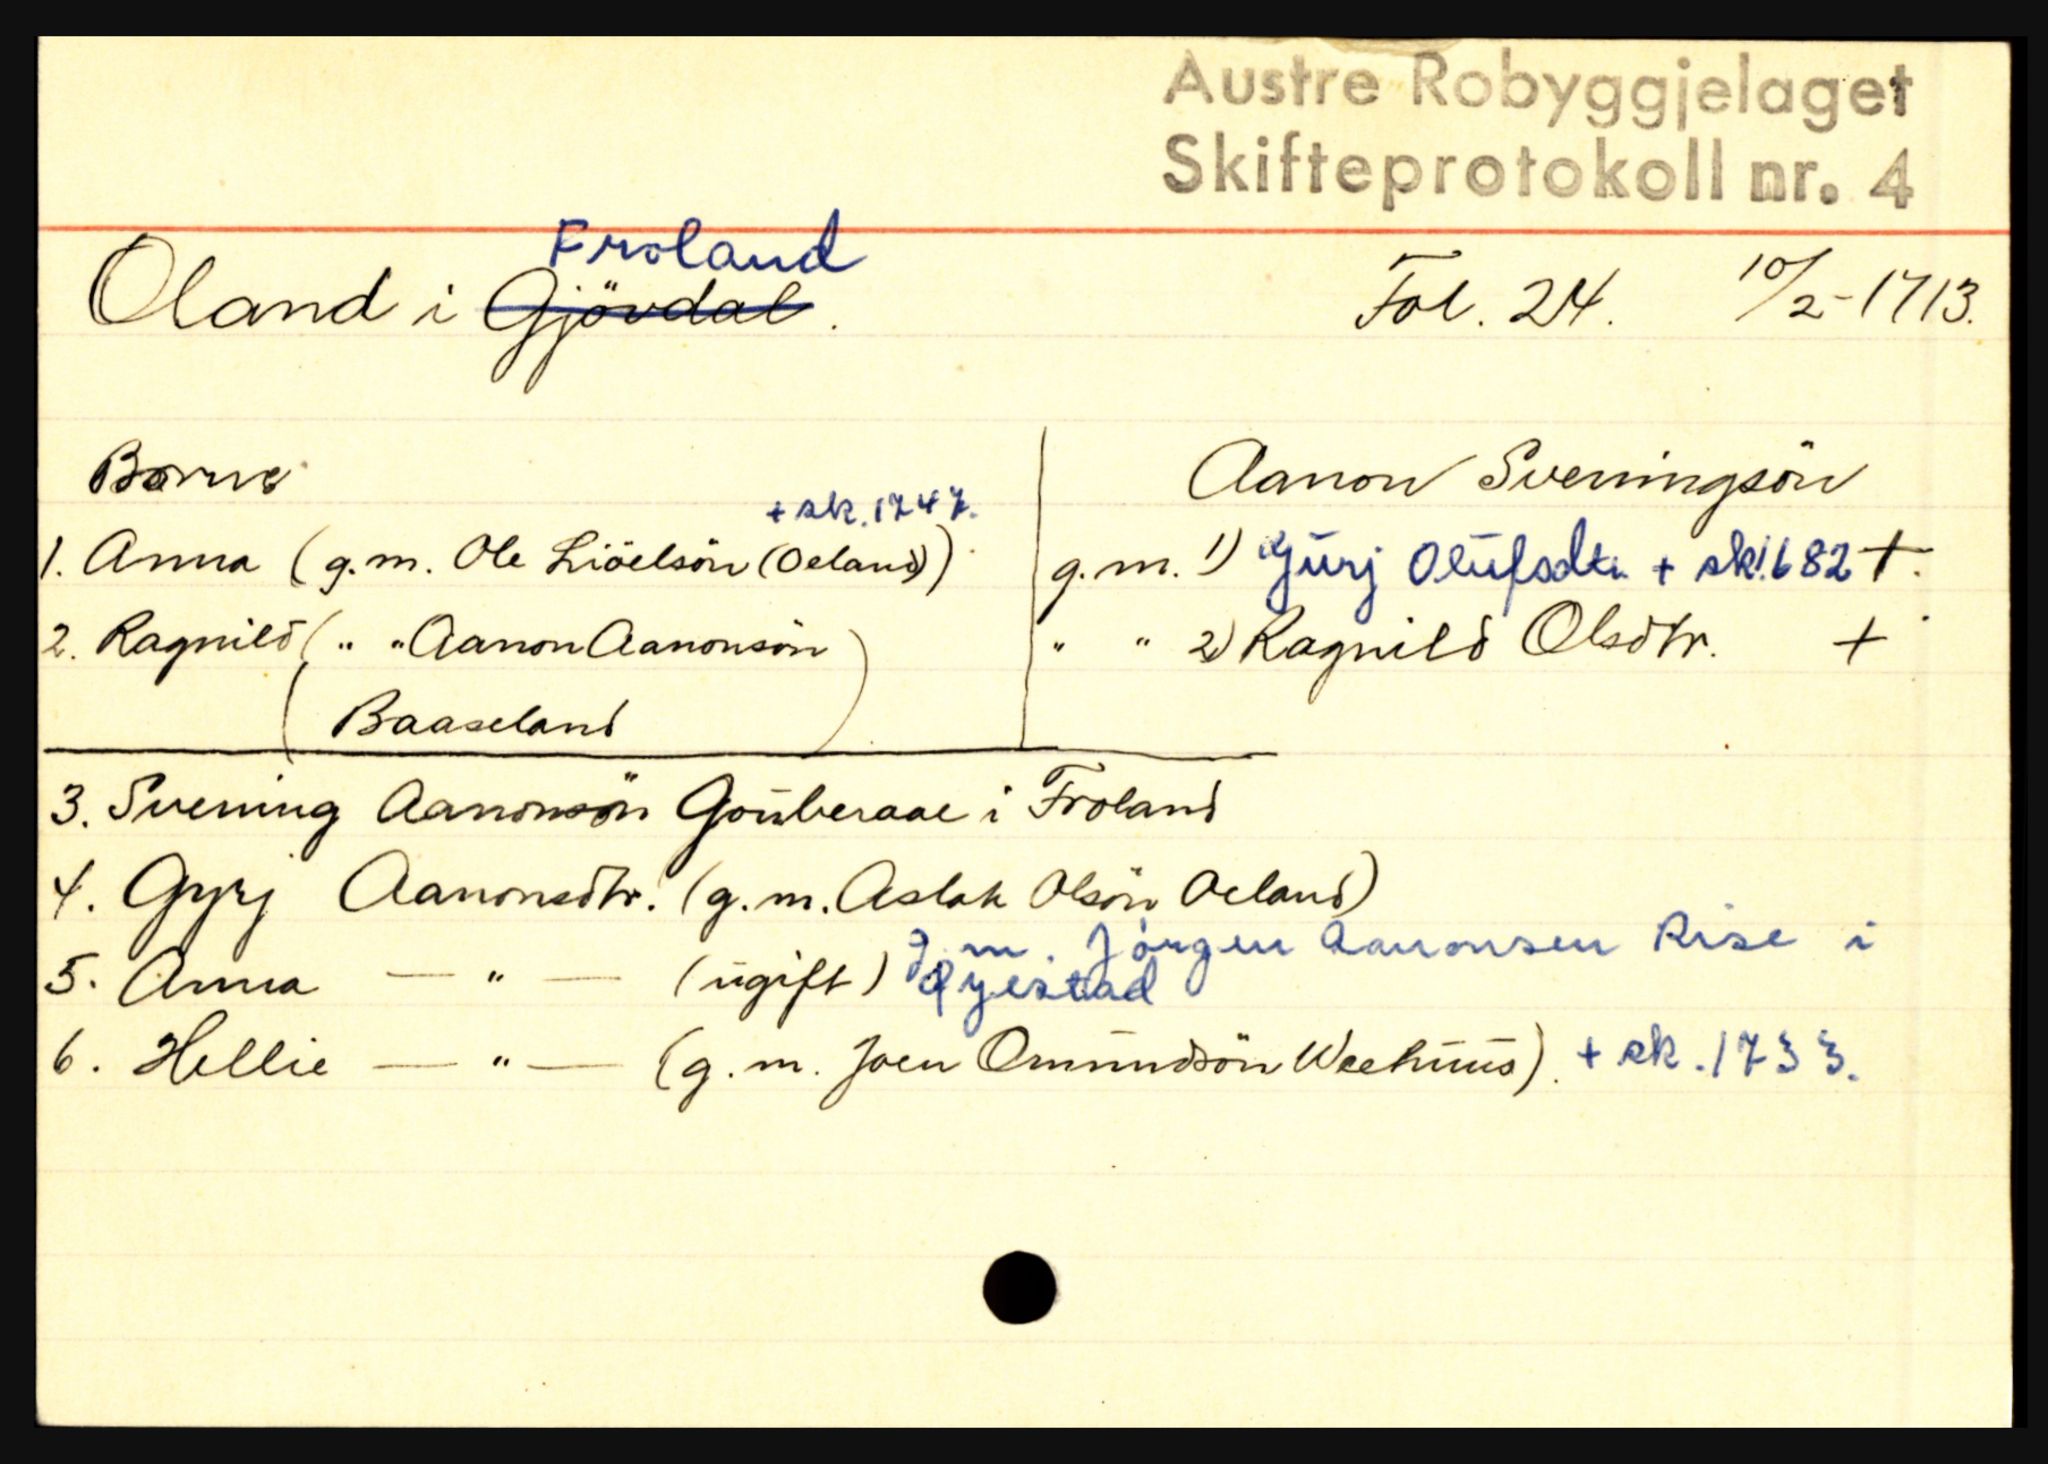 Austre Robyggjelaget
Skifteprotokoll nr. 4
Froland
Oland i Gjövdal. Fol. 24. 10/2-1713.
Børn
+ sk. 1747.
Aanon Sveningsön
1. Anna (g.m. Ole Liöelsön (Oeland))
g.m. 1) Gurj Olufsdtr. + sk. 1682 +.
2. Ragnild ( " " Aanon Aanonsön
" " 2) Ragnild Olsdtr. +
Baaseland )
3. Svening Aanonsön Gouberaae i Froland
4. Gyrj Aanonsdtr. (g.m. Aslak Olsön Oeland)
g.m. Jörgen Aanonsen Rise i
5. Anna — " — (ugift) Øyestad
6. Hellie — " — (g.m. Joen Omundsön Weehuus). + sk. 1733.